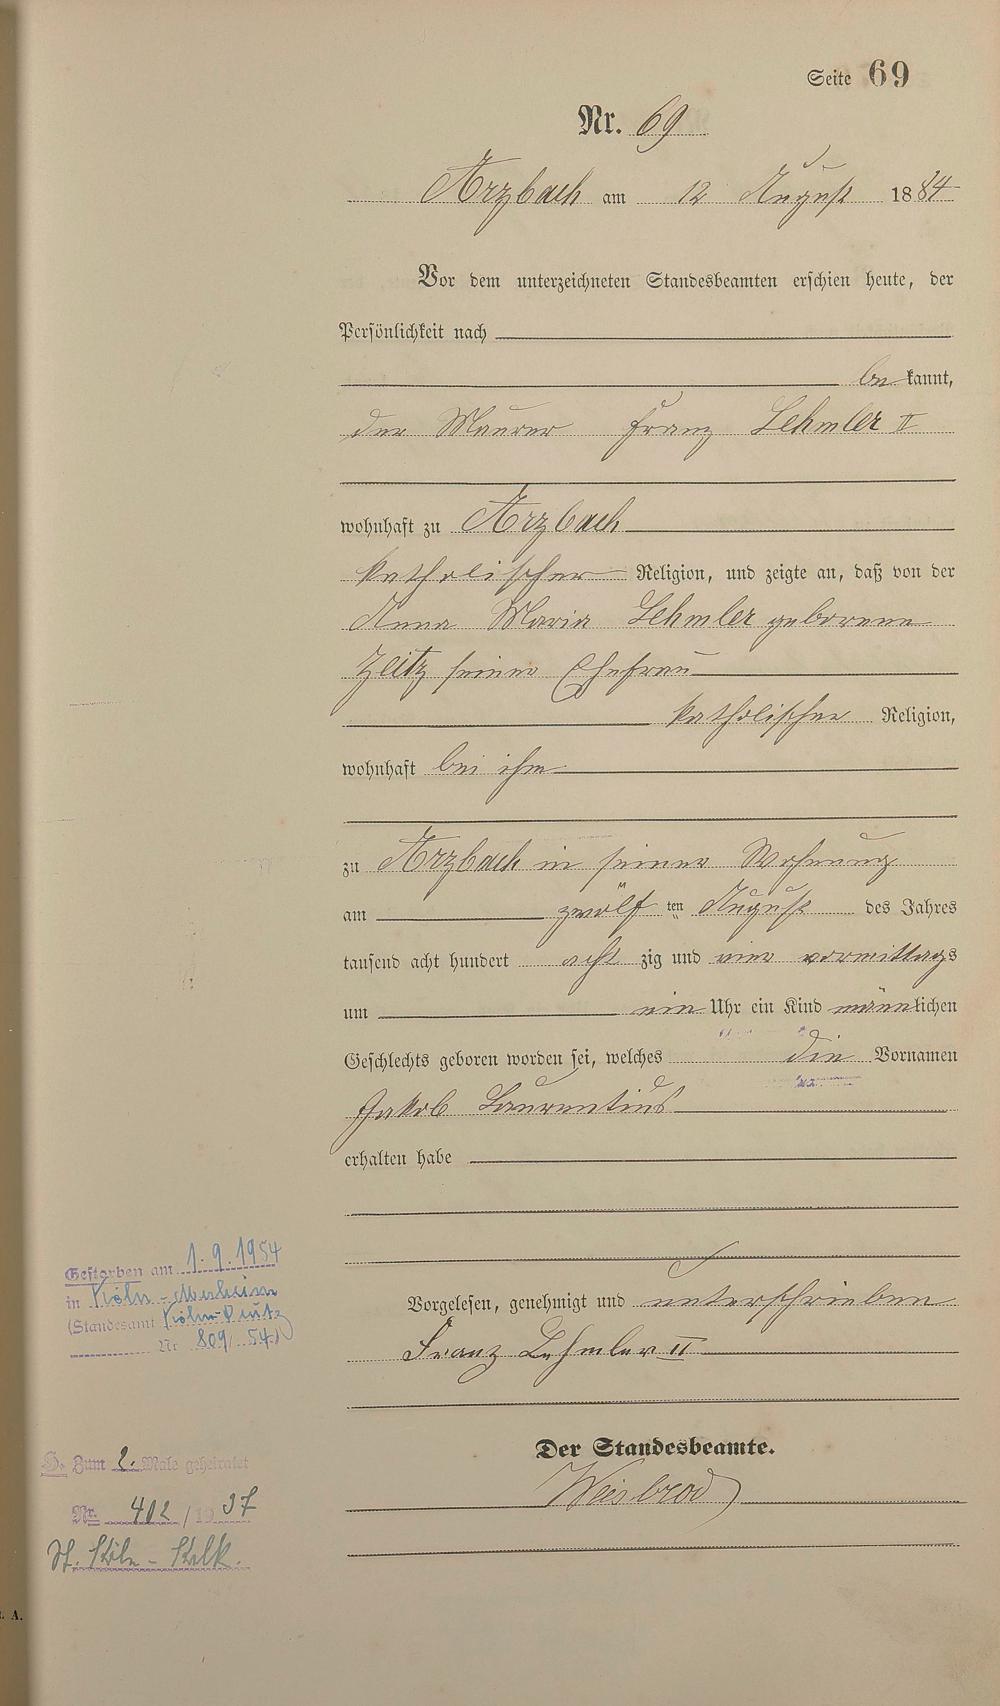 Seite 69
Nr. 69
Arzbach am 12 August 1884
Vor dem unterzeichneten Standesbeamten erschien heute, der
Persönlichkeit nach
bekannt,
der Maurer Franz Lehmler II
wohnhaft zu Arzbach
katholischer Religion, und zeigte an, daß von der
Anna Maria Lehmler geborene
Zeitz seiner Ehefrau
katholischer Religion,
wohnhaft bei ihm
zu Arzbach in seiner Wohnung
am zwölf ten August des Jahres
tausend acht hundert acht zig und vier vormittags
um ein Uhr ein Kind männlichen
Geschlechts geboren worden sei, welches die Vornamen
Jakob Laurentius
erhalten habe
Vorgelesen, genehmigt und unterschrieben
Franz Lehmler II
Der Standesbeamte.
Weisbrod
Gestorben am 1.9.1954
in Köln-Merheim
(Standesamt Köln-Deutz
Nr 809/54.)
H. Zum 2. Male geheiratet
Nr. 402/1937
St. Köln-Kalk.